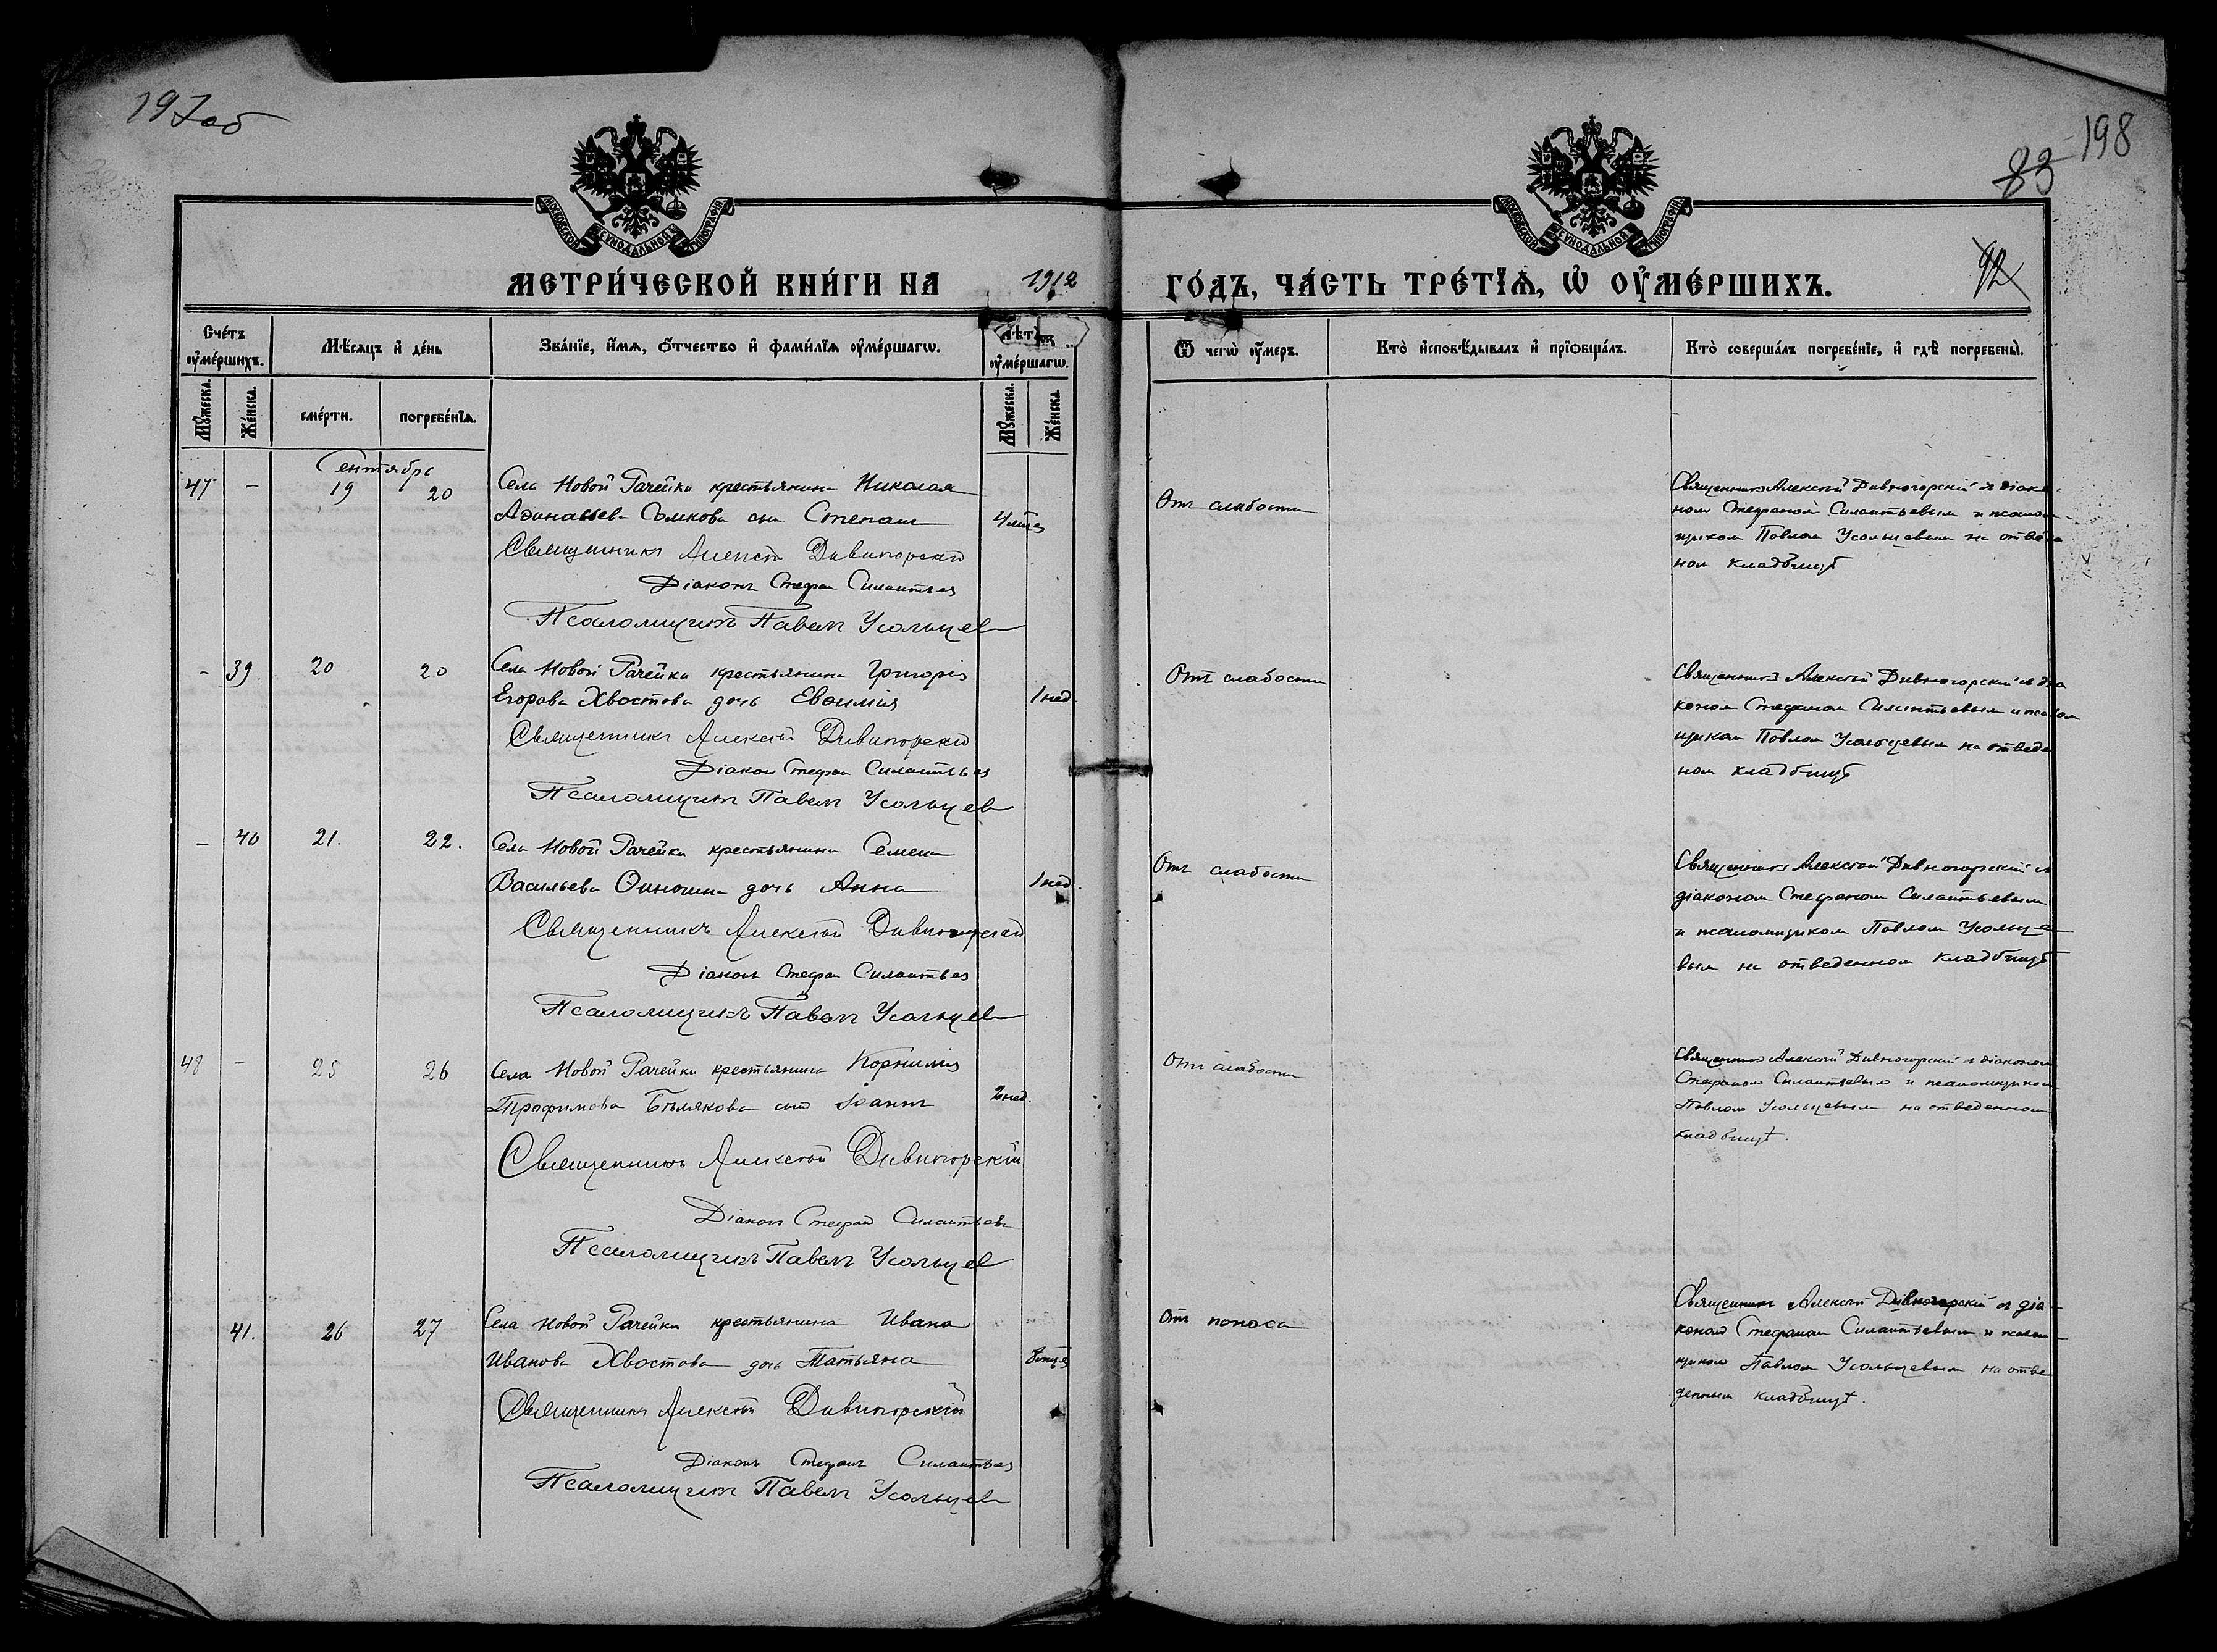 197об
198
83
92
МОСКОВСКОЙ СѴНОДАЛЬНОЙ ТИПОГРАФІИ
МОСКОВСКОЙ СѴНОДАЛЬНОЙ ТИПОГРАФІИ
МЕТРИ́ЧЕСКОЙ КНИ́ГИ НА 1912 ГО́ДЪ, ЧА́СТЬ ТРЕ́ТЇѦ, Ѡ҆ ОУ҆МЕ́РШИХЪ.
Сче́тъ оу҆ме́ршихъ.
Мѣ́сяцъ и҆ де́нь
Зва́нїе, и҆́мѧ, ѻ҆́тчество и҆ фами́лїѧ оу҆ме́ршагѡ.
Лѣт оу҆ме́ршагѡ.
Ѿ чегѡ̀ оу҆́меръ.
Кто̀ и҆сповѣ́дывалъ и҆ прїѡбща́лъ.
Кто̀ соверша́лъ погребе́нїе, и҆ гдѣ̀ погребены̀.
Мꙋ́жеска.
Же́нска.
сме́рти.
погребе́нїѧ.
Мꙋ́жеска.
Же́нска.
Сентябрь
47 - 19 20 Села Новой Рачейки крестьянина Николая
Аѳанасьева Сомкова сын Степанъ
Священникъ Алексѣй Дивногорскій
Діаконъ Стефан Силантьев
Псаломщикъ Павелъ Усольцев
Отъ слабости
Священникъ Алексѣй Дивногорскій съ діако-
ном Стефаном Силантьевым и псалом
щиком Павлом Усольцевым на отведен
ном кладбищѣ
- 39 20 20 Села Новой Рачейки крестьянина Григорія
Егорова Хвостова дочь Евѳимія 1 нед.
Священникъ Алексѣй Дивногорскій
Діакон Стефан Силантьев
Псаломщикъ Павелъ Усольцев
Отъ слабости
Священникъ Алексѣй Дивногорскій съ діа
коном Стефаном Силантьевым и псалом
щиком Павлом Усольцевым на отведен
ном кладбищѣ
- 40 21. 22. Села Новой Рачейки крестьянина Семена
Васильева дочь Анна 1 нед.
Священникъ Алексѣй Дивногорскій
Діаконъ Стефан Силантьев
Псаломщикъ Павелъ Усольцев
Отъ слабости
Священникъ Алексѣй Дивногорскій съ
діаконом Стефаном Силантьевым
и псаломщиком Павлом Усольце-
вым на отведенном кладбищѣ
48 - 25 26 Села Новой Рачейки крестьянина Корнилія
Трофимова Бѣлякова сын Іоаннъ 2 нед.
Священникъ Алексѣй Дивногорскій
Діаконъ Стефан Силантьевъ
Псаломщикъ Павелъ Усольцев
Отъ слабости
Священникъ Алексѣй Дивногорскій съ діаконом
Стефаном Силантьевым и псаломщиком
Павлом Усольцевым на отведенном
кладбищѣ.
41. 26 27 Села Новой Рачейки крестьянина Ивана
Иванова Хвостова дочь Татьяна
Священникъ Алексѣй Дивногорскій
Діаконъ Стефанъ Силантьев
Псаломщикъ Павелъ Усольцев
Отъ поноса
Священникъ Алексѣй Дивногорскій съ діа-
коном Стефаном Силантьевым и псалом-
щиком Павлом Усольцевым на отве
денном кладбищѣ.